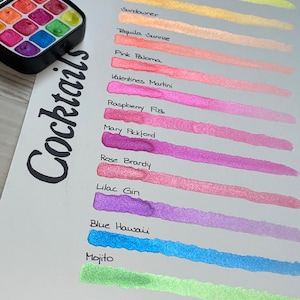 Cocktails
Sundowner
Tequila Sunrise
Pink Paloma
Valentines Martini
Raspberry Fizz
Mary Pickford
Rose Brandy
Lilac Gin
Blue Hawaii
Mojito